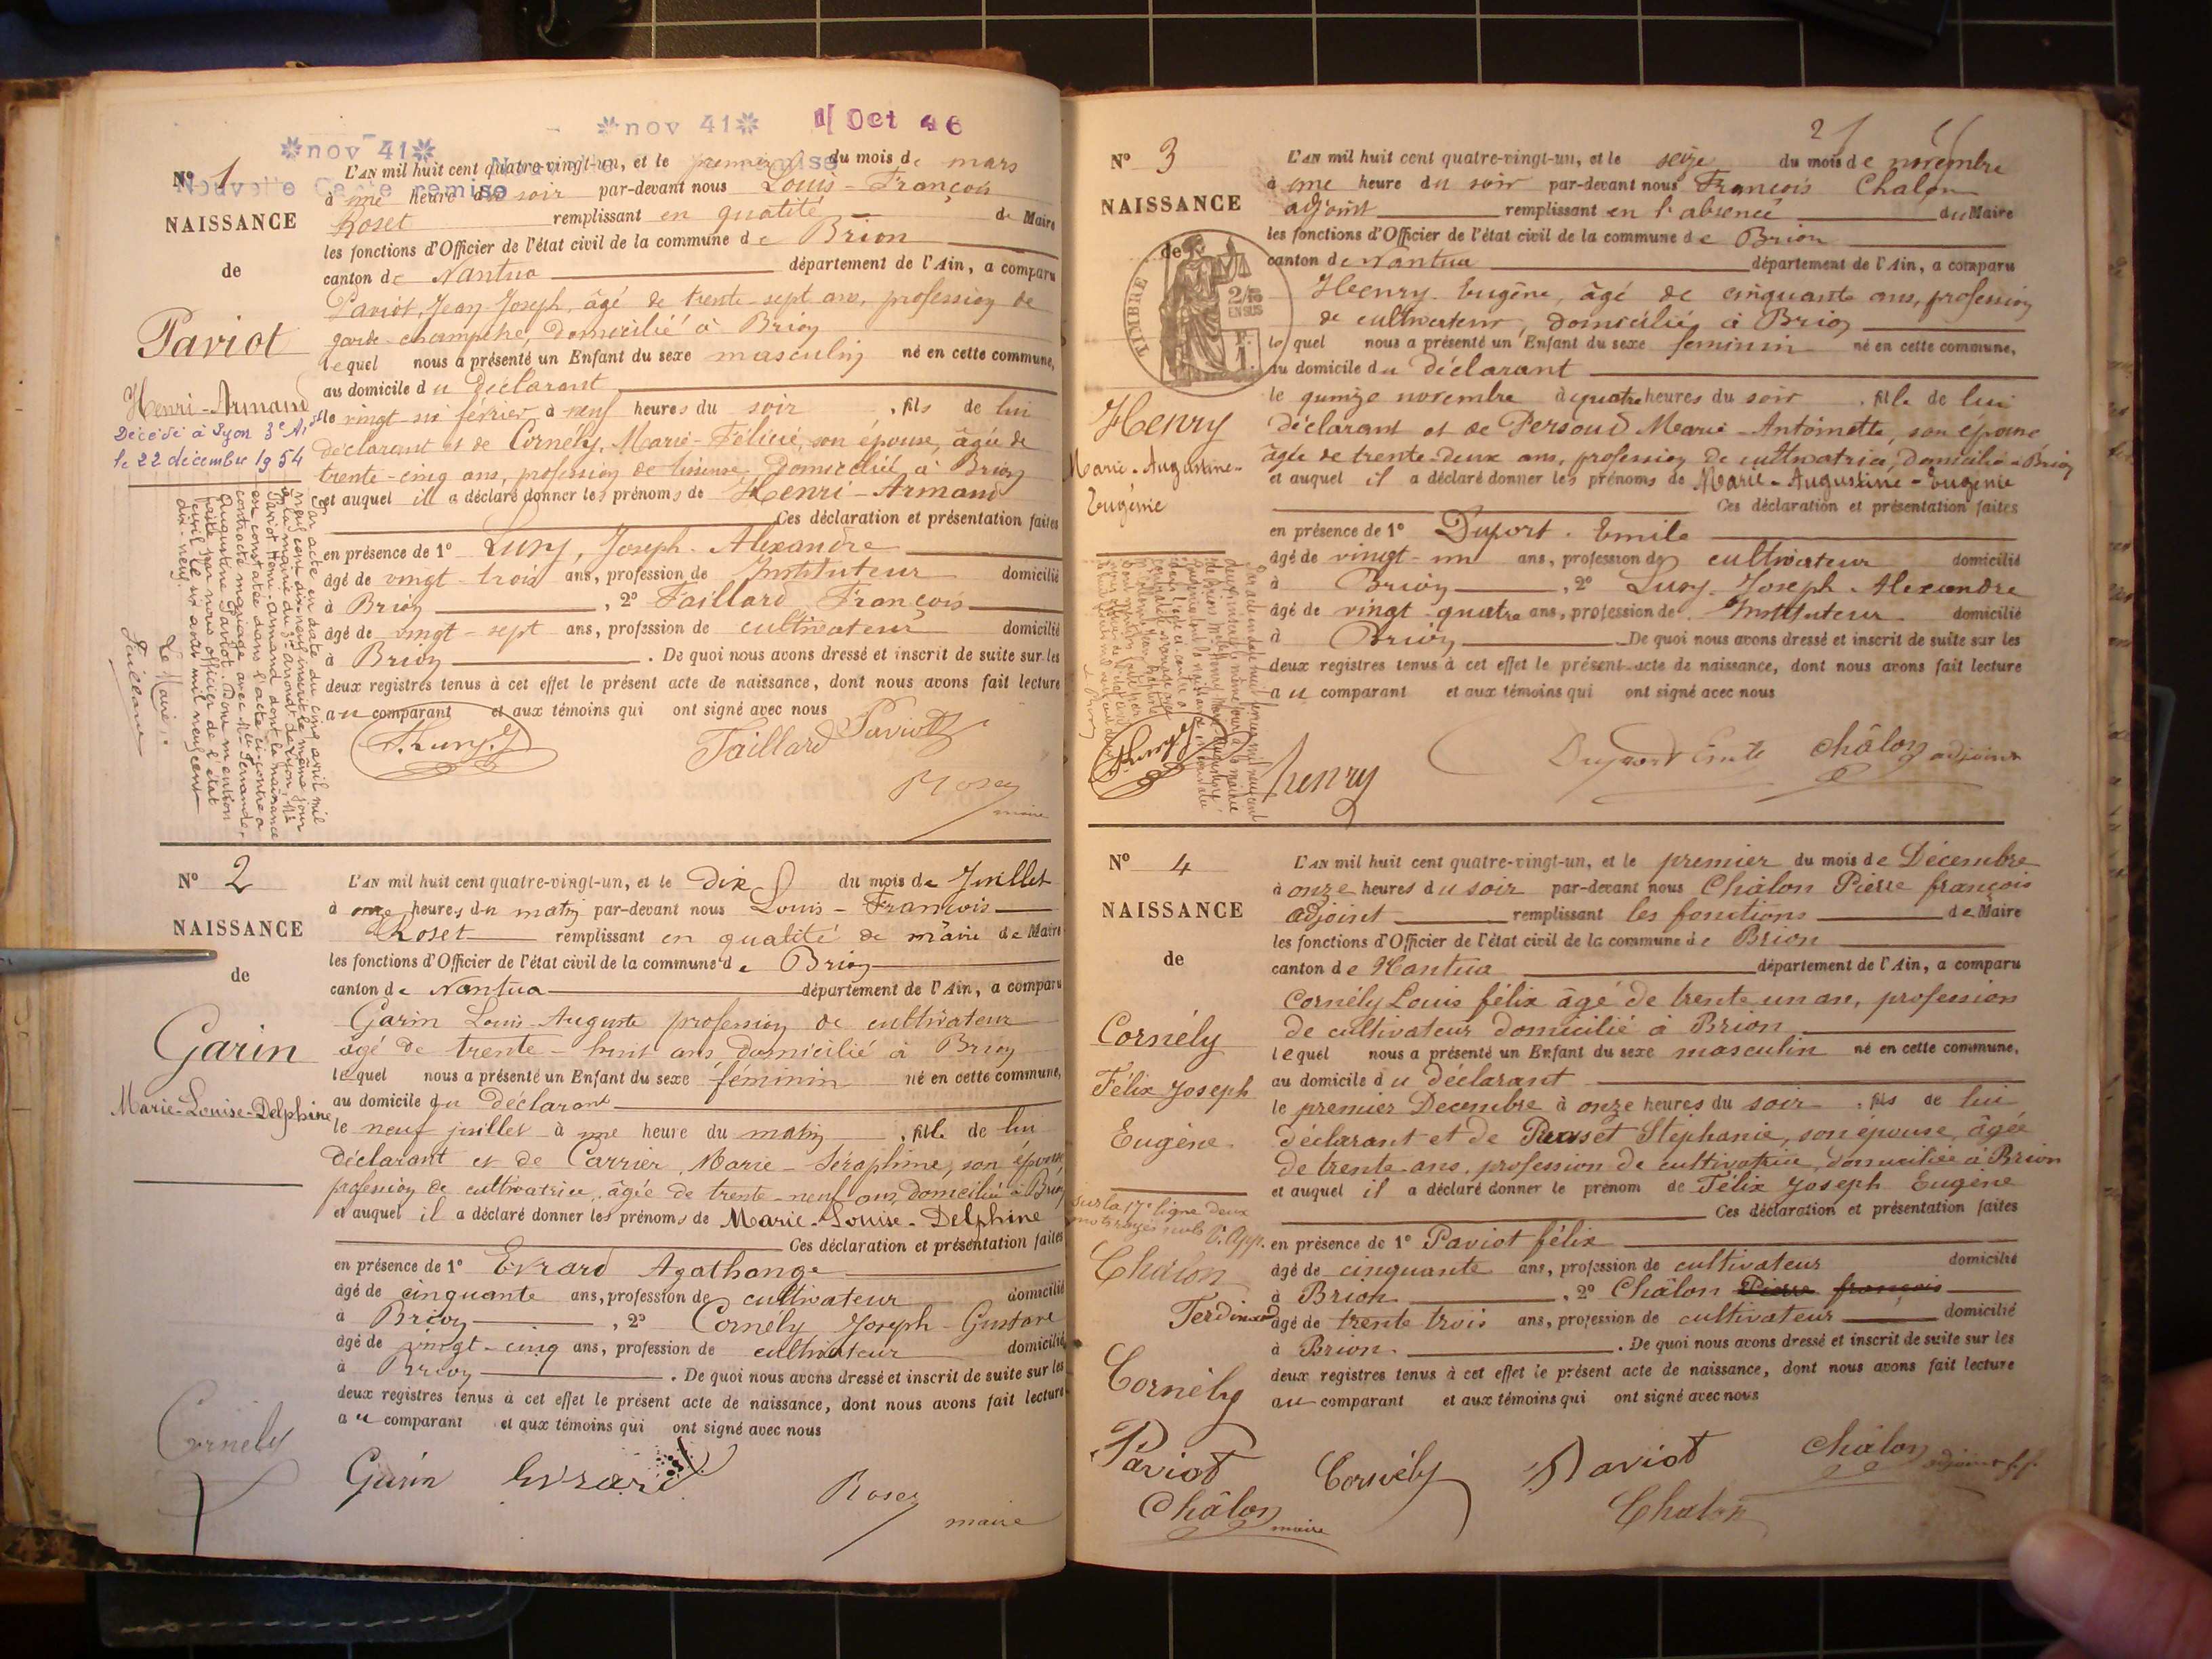 *nov 41*
*nov 41*
1 Oct 46
Nouvelle Carte remise
N° 1
NAISSANCE
de
Paviot
Henri-Armand
Décédé à Lyon 3e
le 22 décembre 1954
L'AN mil huit cent quatre-vingt-un, et le premier du mois de mars
à une heure du soir par-devant nous Louis-François
Roset remplissant en qualité de Maire
les fonctions d'Officier de l'état civil de la commune de Brion
canton de Nantua département de l'Ain, a comparu
Paviot, Jean-Joseph, âgé de trente-sept ans, profession de
garde-champêtre, domicilié à Brion
lequel nous a présenté un Enfant du sexe masculin né en cette commune,
au domicile du déclarant
le vingt-six février, à neuf heures du soir, fils de lui
déclarant et de Cornély, Marie-Félicie, son épouse, âgée de
trente-cinq ans, profession de domiciliée à Brion
et auquel il a déclaré donner les prénoms de Henri-Armand
Ces déclaration et présentation faites
en présence de 1° Luny, Joseph-Alexandre
âgé de vingt-trois ans, profession de Instituteur domicilié
à Brion, 2° Faillard François
âgé de vingt-sept ans, profession de cultivateur domicilié
à Brion. De quoi nous avons dressé et inscrit de suite sur les
deux registres tenus à cet effet le présent acte de naissance, dont nous avons fait lecture
au comparant et aux témoins qui ont signé avec nous
Par acte en date du cinq avril mil
neuf cent dix-neuf inscrit le même jour
à la mairie du 3e arrondt de Lyon, Mr
Paviot Henri-Armand dont la naissance
est constatée dans l'acte ci-contre a
contracté mariage avec Mlle
Augustine Paviot. Dont mention
faite par nous officier de l'état
civil le six août mil neuf cent
dix-neuf
Le Maire,
Faillard Paviot
Roset
maire
N° 2
NAISSANCE
de
Garin
Marie-Louise-Delphine
L'AN mil huit cent quatre-vingt-un, et le Dix du mois de Juillet
à onze heures du matin par-devant nous Louis-François
Roset remplissant en qualité de maire de Maire
les fonctions d'Officier de l'état civil de la commune de Brion
canton de Nantua département de l'Ain, a comparu
Garin Louis-Auguste profession de cultivateur
âgé de trente-huit ans, domicilié à Brion
lequel nous a présenté un Enfant du sexe féminin né en cette commune,
au domicile du déclarant
le neuf juillet à une heure du matin, fille de lui
déclarant et de Carrier, Marie-Séraphine, son épouse
profession de cultivatrice, âgée de trente-neuf ans, domiciliée à Brion
et auquel il a déclaré donner les prénoms de Marie-Louise-Delphine
Ces déclaration et présentation faites
en présence de 1° Evrard Agathange
âgé de cinquante ans, profession de cultivateur domicilié
à Brion, 2° Cornély Joseph-Gustave
âgé de vingt-cinq ans, profession de cultivateur domicilié
à Brion. De quoi nous avons dressé et inscrit de suite sur les
deux registres tenus à cet effet le présent acte de naissance, dont nous avons fait lecture
au comparant et aux témoins qui ont signé avec nous
Cornély
Garin Evrard
Roset
maire
2
N° 3
NAISSANCE
de
TIMBRE
2/10
EN SUS
Henry
Marie-Augustine-
Eugénie
L'AN mil huit cent quatre-vingt-un, et le seize du mois de novembre
à une heure du soir par-devant nous François Chalon
adjoint remplissant en l'absence du Maire
les fonctions d'Officier de l'état civil de la commune de Brion
canton de Nantua département de l'Ain, a comparu
Henry Eugène, âgé de cinquante ans, profession
de cultivateur, domicilié à Brion
lequel nous a présenté un Enfant du sexe féminin né en cette commune,
au domicile du déclarant
le quinze novembre à quatre heures du soir, fille de lui
déclarant et de Persoud Marie-Antoinette, son épouse
âgée de trente-deux ans, profession de cultivatrice, domiciliée à Brion
et auquel il a déclaré donner les prénoms de Marie-Augustine-Eugénie
Ces déclaration et présentation faites
en présence de 1° Duport Emile
âgé de vingt-un ans, profession de cultivateur domicilié
à Brion, 2° Luny Joseph-Alexandre
âgé de vingt-quatre ans, profession de Instituteur domicilié
à Brion De quoi nous avons dressé et inscrit de suite sur les
deux registres tenus à cet effet le présent acte de naissance, dont nous avons fait lecture
au comparant et aux témoins qui ont signé avec nous
henry
Duport Emile châlon adjoint
N° 4
NAISSANCE
de
Cornély
Félix Joseph
Eugène
L'AN mil huit cent quatre-vingt-un, et le premier du mois de Décembre
à onze heures du soir par-devant nous Châlon Pierre françois
adjoint remplissant les fonctions de Maire
les fonctions d'Officier de l'état civil de la commune de Brion
canton de Nantua département de l'Ain, a comparu
Cornély Louis félix âgé de trente un an, profession
de cultivateur domicilié à Brion
lequel nous a présenté un Enfant du sexe masculin né en cette commune,
au domicile du déclarant
le premier Décembre à onze heures du soir, fils de lui
déclarant et de Stephanie, son épouse, âgée
de trente ans, profession de cultivatrice, domiciliée à Brion
et auquel il a déclaré donner le prénom de Félix Joseph Eugène
Ces déclaration et présentation faites
en présence de 1° Paviot félix
âgé de cinquante ans, profession de cultivateur domicilié
à Brion, 2° Châlon Pierre françois
âgé de trente trois ans, profession de cultivateur domicilié
à Brion. De quoi nous avons dressé et inscrit de suite sur les
deux registres tenus à cet effet le présent acte de naissance, dont nous avons fait lecture
au comparant et aux témoins qui ont signé avec nous
Sur la 17e ligne deux
mots rayés nuls App.
Châlon
Ferdinand
Cornély
Paviot
Châlon maire
Cornély Paviot Châlon adjoint
Chalon